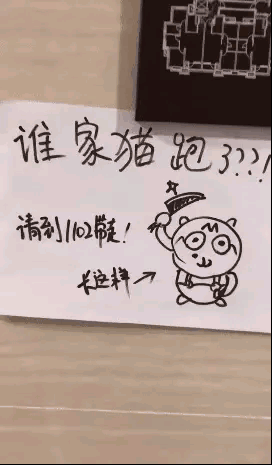 谁家猫跑了???!
请到1102带走!
长这样→